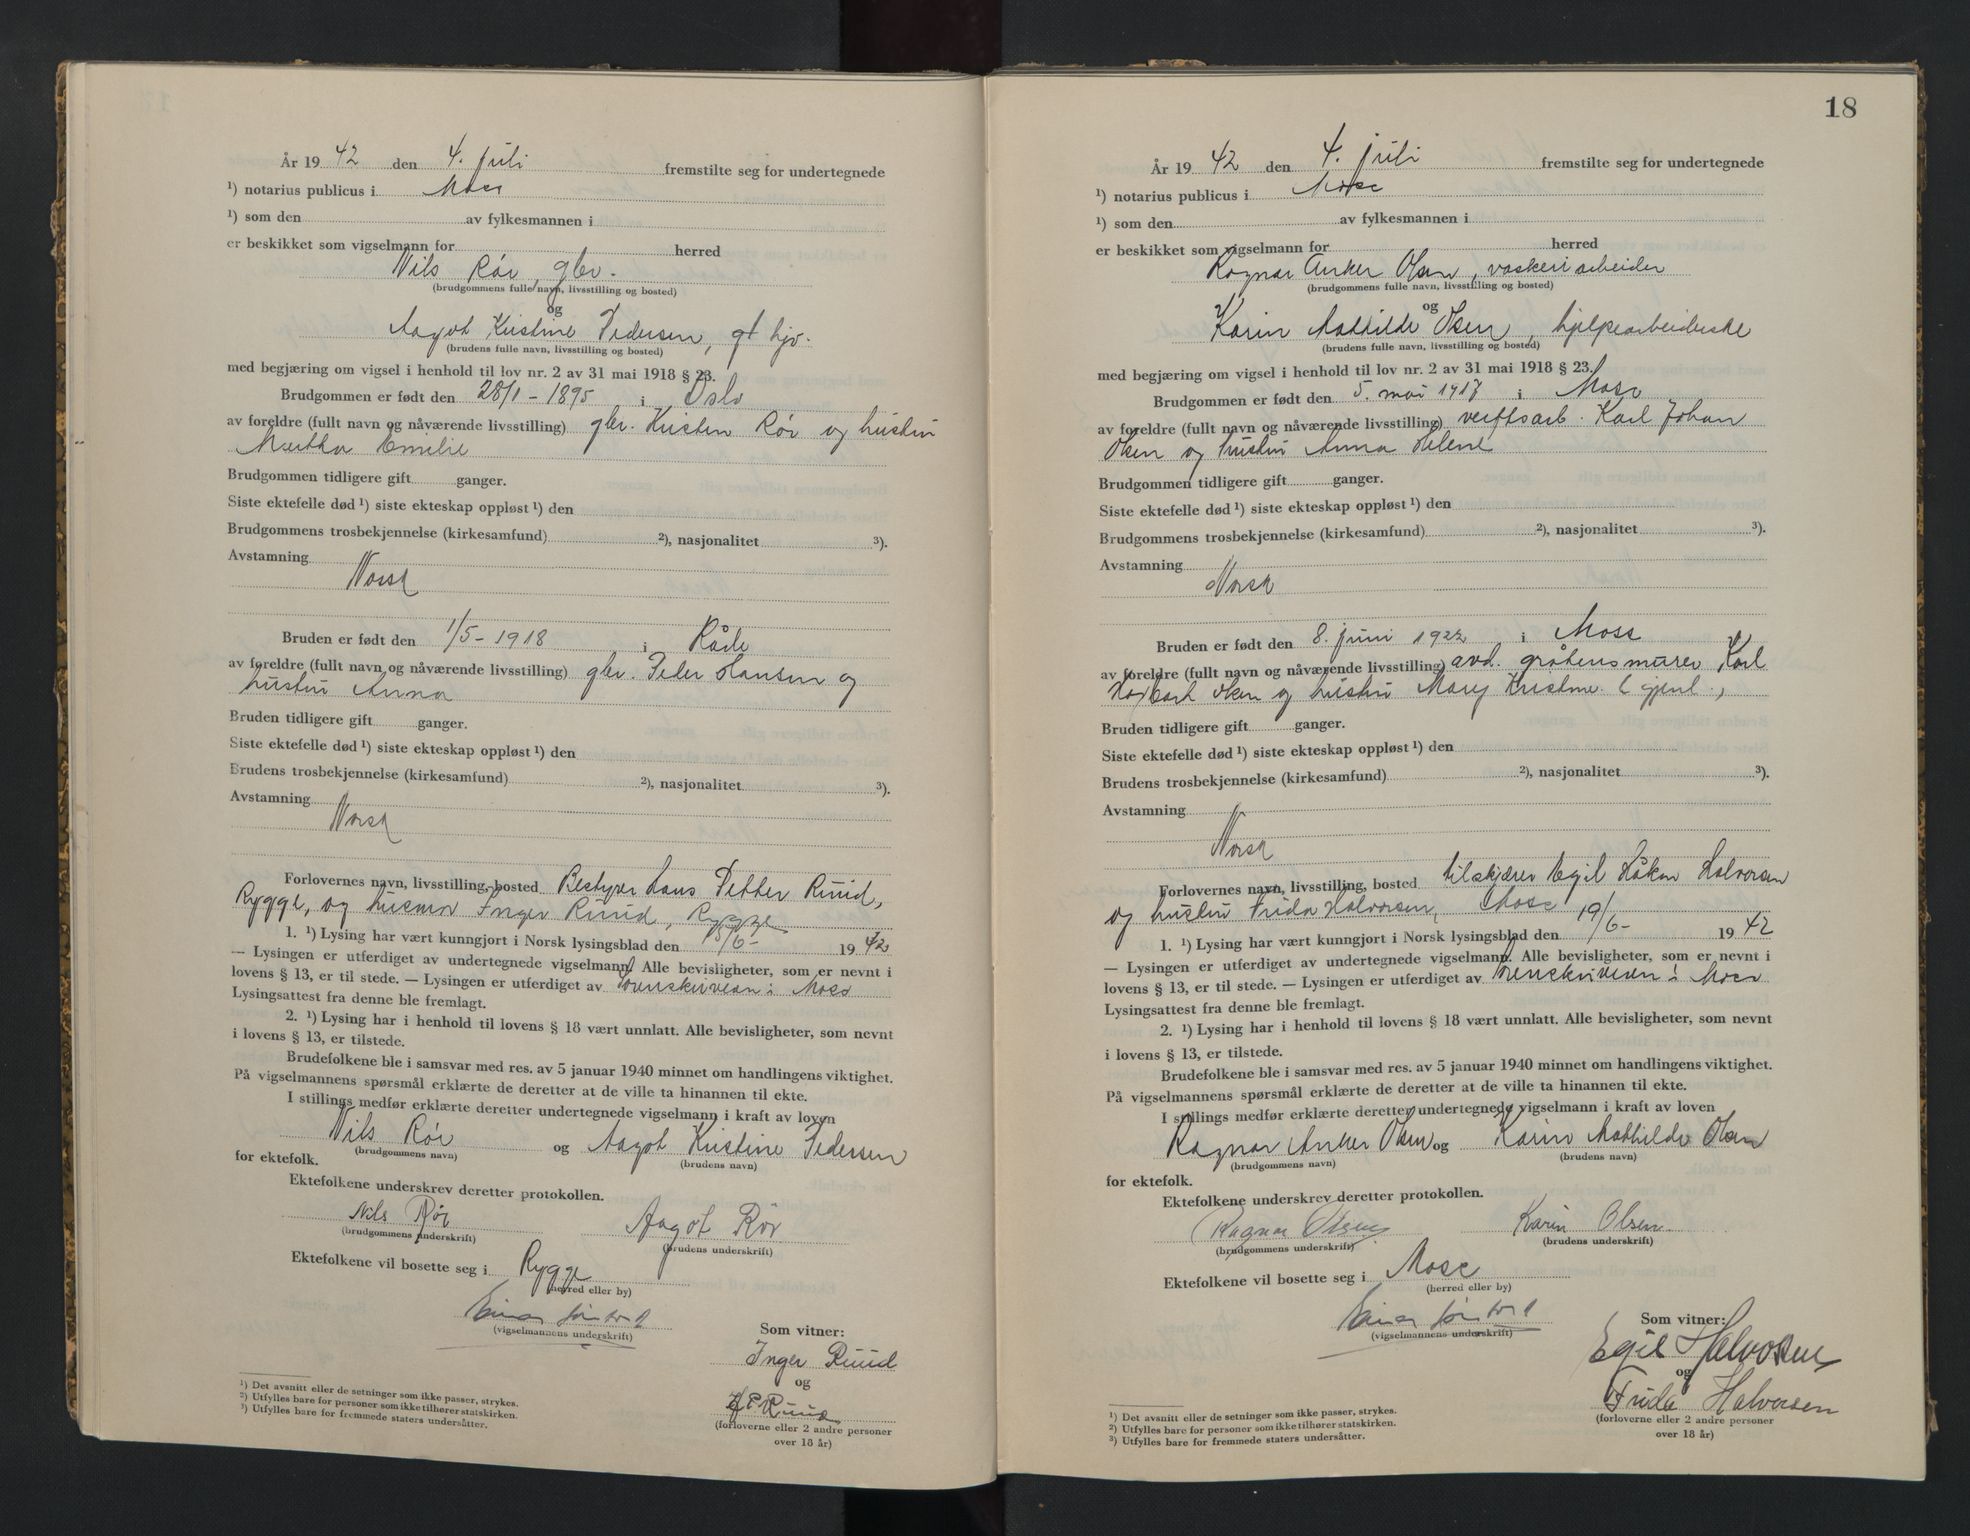 År 19 42 den 4. juli fremstilte seg for undertegnede
¹) notarius publicus i Moss
¹) som den av fylkesmannen i
er beskikket som vigselmann for herred
Nils Rör, gbr.
(brudgommens fulle navn, livsstilling og bosted)
og
Aagot Kristine Pedersen, gt hjv.
(brudens fulle navn, livsstilling og bosted)
med begjæring om vigsel i henhold til lov nr. 2 av 31 mai 1918 § 23.
Brudgommen er født den 28/1 - 1895 i Oslo
av foreldre (fullt navn og nåværende livsstilling) gbr. Kristen Rör og hustru
Martha Emilie
Brudgommen tidligere gift ganger.
Siste ektefelle død ¹) siste ekteskap oppløst ¹) den
Brudgommens trosbekjennelse (kirkesamfund) ²), nasjonalitet ³).
Avstamning
Norsk
Bruden er født den 1/5 - 1918 i Råde
av foreldre (fullt navn og nåværende livsstilling) gbr. Peder Hansen og
hustru Anna
Bruden tidligere gift ganger.
Siste ektefelle død ¹) siste ekteskap oppløst ¹) den
Brudens trosbekjennelse (kirkesamfund) ²), nasjonalitet ³).
Avstamning
Norsk
Forlovernes navn, livsstilling, bosted Bestyrer Hans Petter Ruud,
Rygge, og husmor Inger Ruud, Rygge
1. ¹) Lysing har vært kunngjort i Norsk lysingsblad den 15/6- 19 42
— Lysingen er utferdiget av undertegnede vigselmann. Alle bevisligheter, som er nevnt i
lovens § 13, er til stede. — Lysingen er utferdiget av Sorenskriveren i Moss
Lysingsattest fra denne ble fremlagt.
2. ¹) Lysing har i henhold til lovens § 18 vært unnlatt. Alle bevisligheter, som nevnt
i lovens § 13, er tilstede.
Brudefolkene ble i samsvar med res. av 5 januar 1940 minnet om handlingens viktighet.
På vigselmannens spørsmål erklærte de deretter at de ville ta hinannen til ekte.
I stillings medfør erklærte deretter undertegnede vigselmann i kraft av loven
Nils Rör og Aagot Kristine Pedersen
(brudgommens navn) (brudens navn)
for ektefolk.
Ektefolkene underskrev deretter protokollen.
Nils Rör Aagot Rör
(brudgommens underskrift) (brudens underskrift)
Ektefolkene vil bosette seg i Rygge
(herred eller by)
Einar
(vigselmannens underskrift)
Som vitner:
Inger Ruud
og
H P Ruud
(forloverne eller 2 andre personer
over 18 år)
¹) Det avsnitt eller de setninger som ikke passer, strykes.
²) Utfylles bare for personer som ikke tilhører statskirken.
³) Utfylles bare for fremmede staters undersåtter.
18
År 19 42 den 4. juli fremstilte seg for undertegnede
¹) notarius publicus i Moss
¹) som den av fylkesmannen i
er beskikket som vigselmann for herred
Ragnar Anker Olsen, vaskeriarbeider
(brudgommens fulle navn, livsstilling og bosted)
og
Karin Mathilde Olsen, hjelpearbeiderske
(brudens fulle navn, livsstilling og bosted)
med begjæring om vigsel i henhold til lov nr. 2 av 31 mai 1918 § 23.
Brudgommen er født den 5. mai 1917 i Moss
av foreldre (fullt navn og nåværende livsstilling) verftsarb. Karl Johan
Olsen og hustru Anna Helene
Brudgommen tidligere gift ganger.
Siste ektefelle død ¹) siste ekteskap oppløst ¹) den
Brudgommens trosbekjennelse (kirkesamfund) ²), nasjonalitet ³).
Avstamning
Norsk
Bruden er født den 8. juni 1922 i Moss
av foreldre (fullt navn og nåværende livsstilling) avd. gråbensmurer Karl
Harbart Olsen og hustru Mary Kristine (gjenl.,
Bruden tidligere gift ganger.
Siste ektefelle død ¹) siste ekteskap oppløst ¹) den
Brudens trosbekjennelse (kirkesamfund) ²), nasjonalitet ³).
Avstamning
Norsk
Forlovernes navn, livsstilling, bosted tilskjærer Egil Håkon Halvorsen
og hustru Frida Halvorsen, Moss
1. ¹) Lysing har vært kunngjort i Norsk lysingsblad den 19/6- 19 42
— Lysingen er utferdiget av undertegnede vigselmann. Alle bevisligheter, som er nevnt i
lovens § 13, er til stede. — Lysingen er utferdiget av Sorenskriveren i Moss
Lysingsattest fra denne ble fremlagt.
2. ¹) Lysing har i henhold til lovens § 18 vært unnlatt. Alle bevisligheter, som nevnt
i lovens § 13, er tilstede.
Brudefolkene ble i samsvar med res. av 5 januar 1940 minnet om handlingens viktighet.
På vigselmannens spørsmål erklærte de deretter at de ville ta hinannen til ekte.
I stillings medfør erklærte deretter undertegnede vigselmann i kraft av loven
Ragnar Anker Olsen og Karin Mathilde Olsen
(brudgommens navn) (brudens navn)
for ektefolk.
Ektefolkene underskrev deretter protokollen.
Ragnar Olsen Karin Olsen
(brudgommens underskrift) (brudens underskrift)
Ektefolkene vil bosette seg i Moss
(herred eller by)
Einar
(vigselmannens underskrift)
Som vitner:
Egil Halvorsen
og
Frida Halvorsen
(forloverne eller 2 andre personer
over 18 år)
¹) Det avsnitt eller de setninger som ikke passer, strykes.
²) Utfylles bare for personer som ikke tilhører statskirken.
³) Utfylles bare for fremmede staters undersåtter.